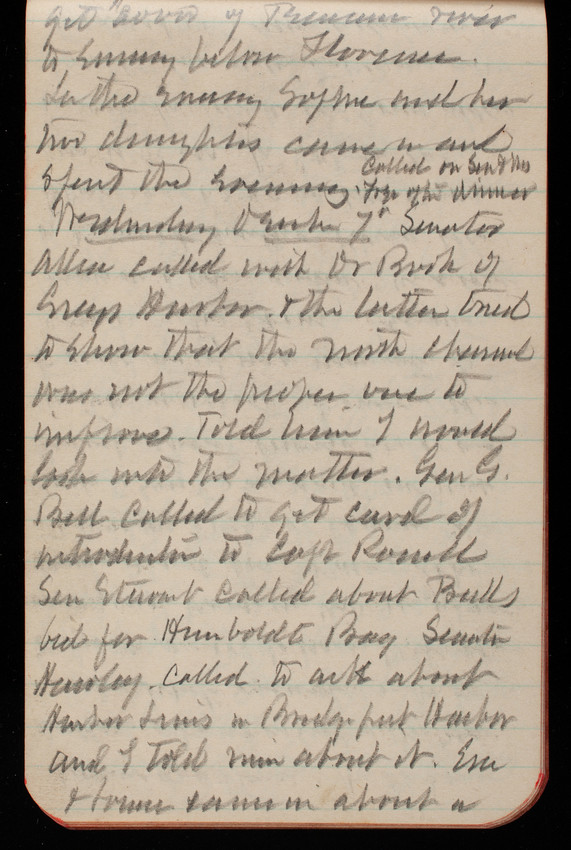 get … of Tennessee river
to Emmy below Florence.
In the evening Sophie and her
two daughters came in and
spent the evening. Called on Sen & Mrs
Frye after dinner
Wednesday October 7" Senator
Allen called with Dr Bush of
Grays Harbor. & the latter tried
to show that the north channel
was not the proper one to
improve. Told him I would
look into the matter. Gen G.
Bell called to get card of
introduction to Capt Rowell
Sen Stewart called about Bulls
bid for Humboldt Bay. Senator
Hawley called to ask about
Harbor Lines in Bridgeport Harbor
and I told him about it. Em
& … came in about a